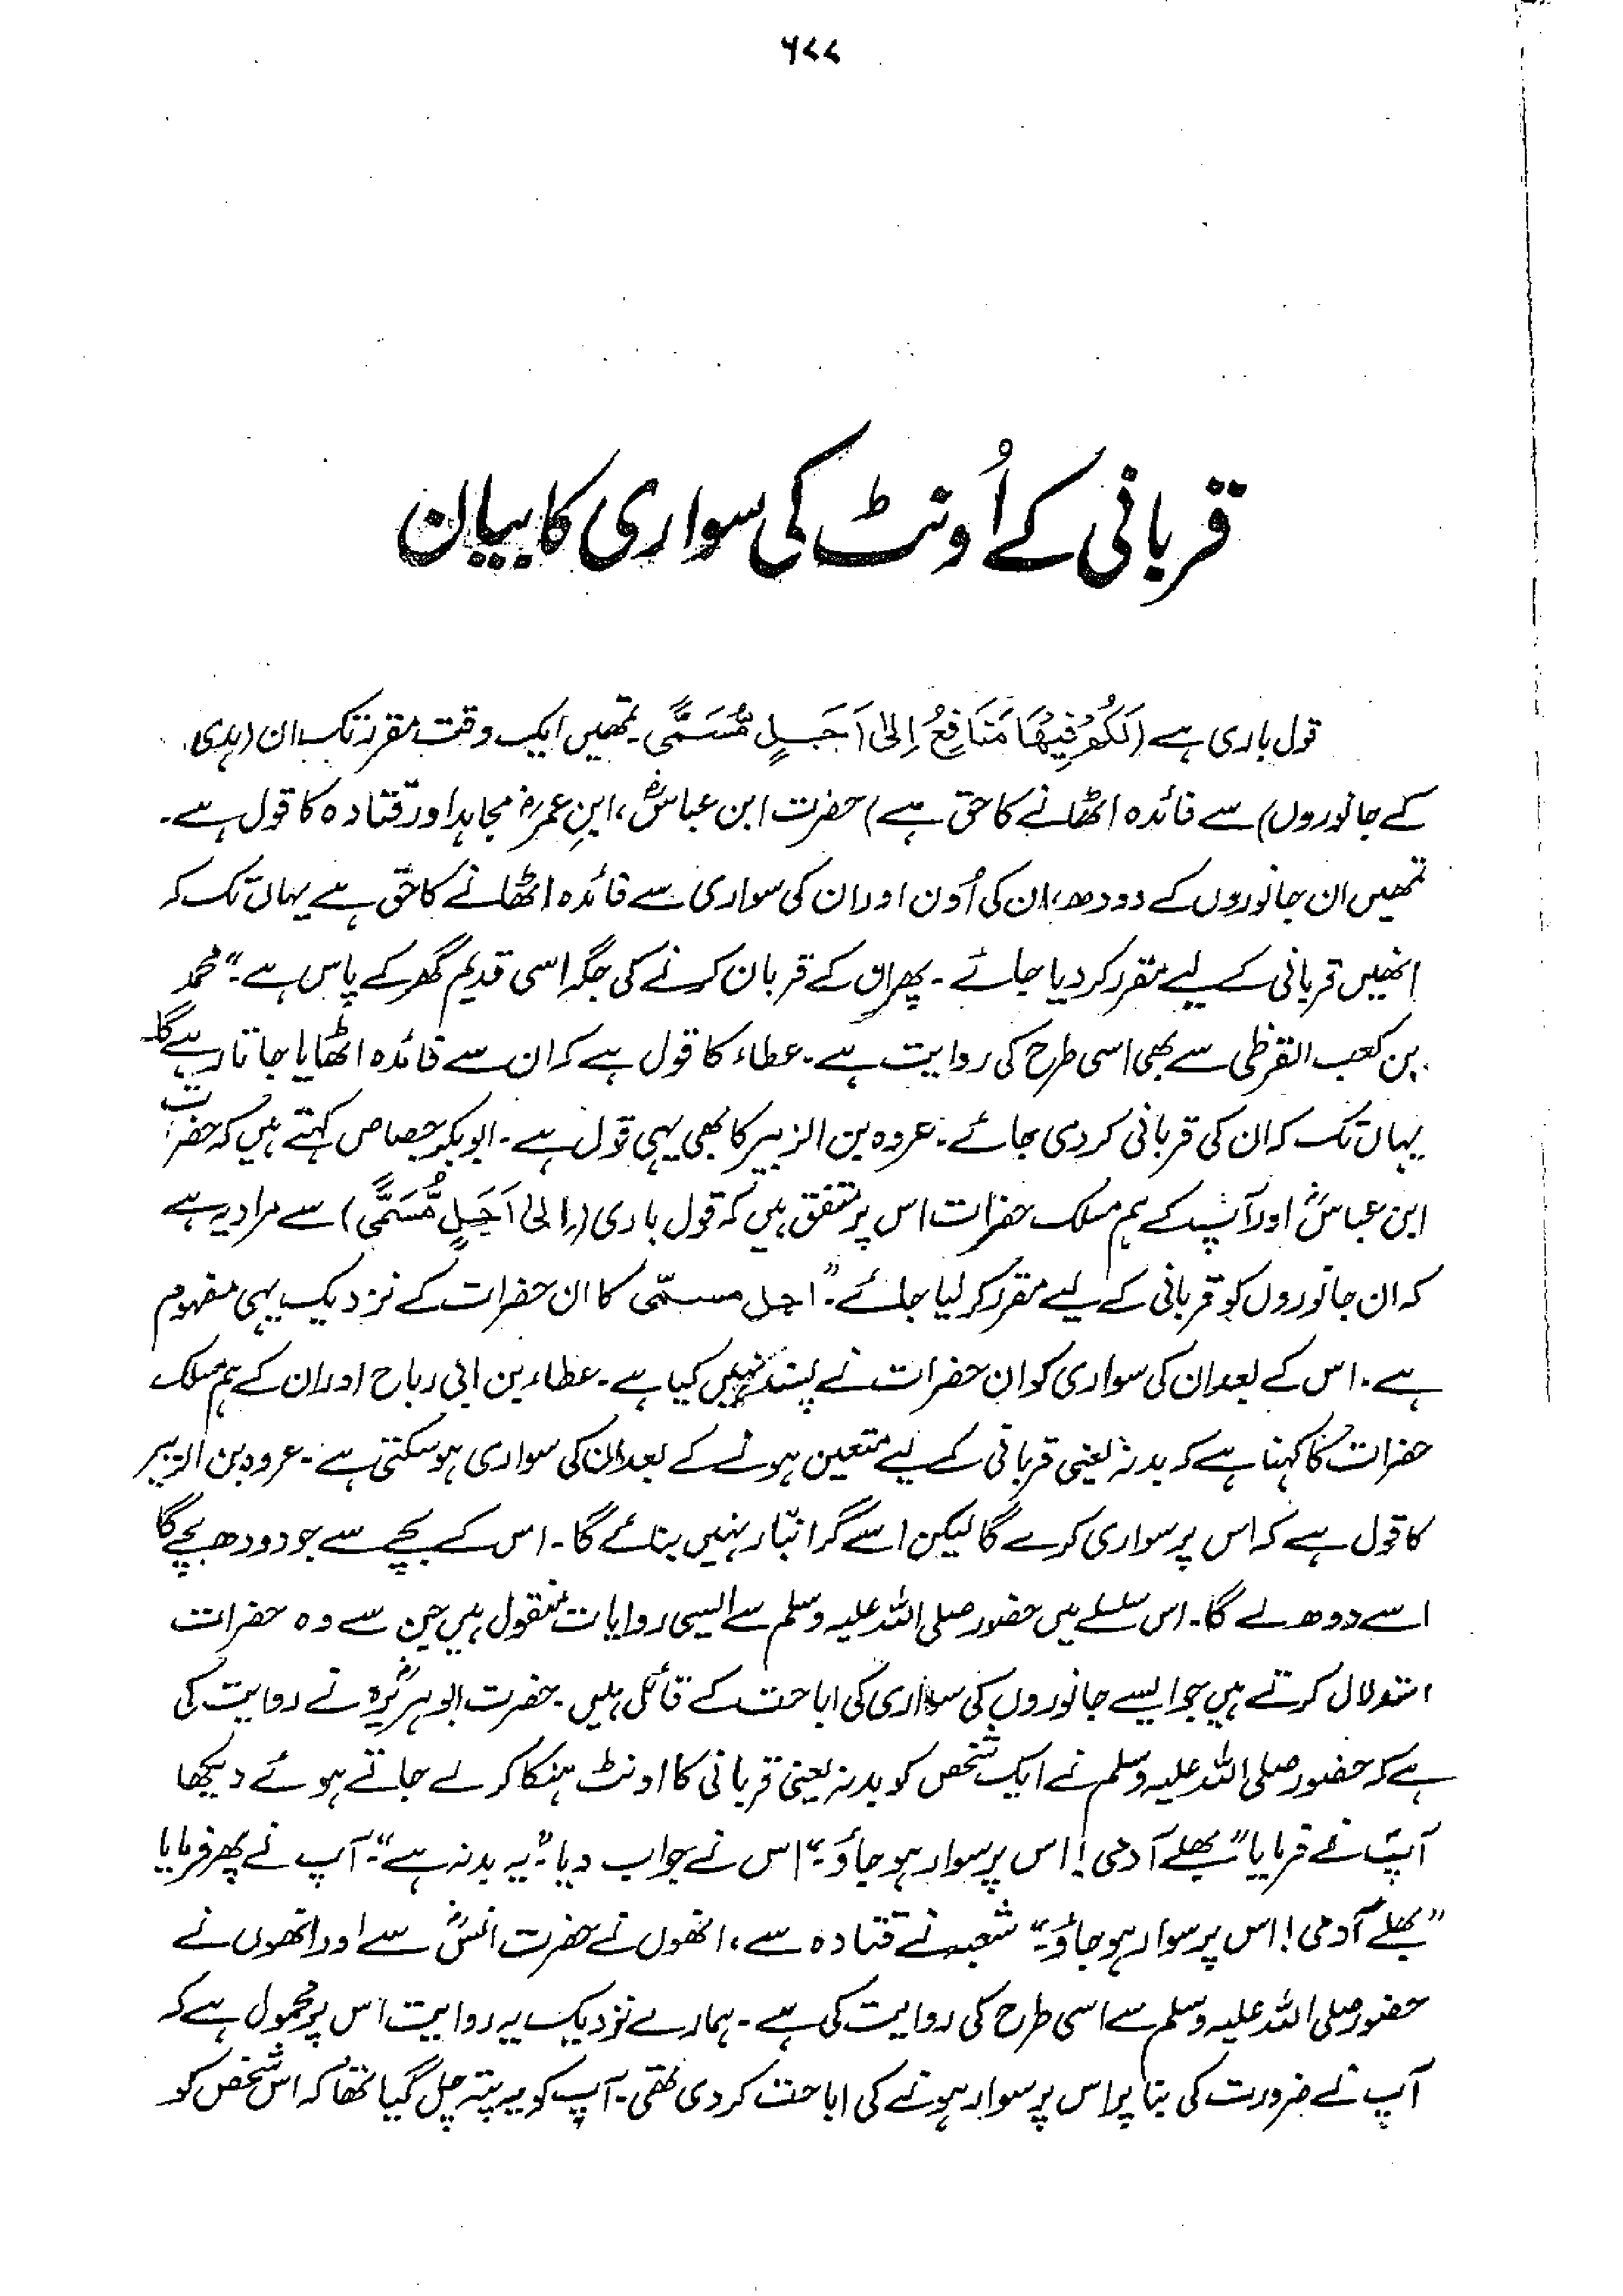 ۶۷۷
قربانی کے اُونٹ کی سواری کا بیان
قول باری ہے (لَكُمْ فِيْهَا مَنَافِعُ اِلٰى اَجَلٍ مُّسَمًّى۔ تمھیں ایک وقت مقرر تک ان (ہدی
کے جانوروں) سے فائدہ اٹھانے کا حق ہے) حضرت ابن عباسؓ، ابنِ عمرؓ مجاہد اور قتادہ کا قول ہے۔
تمھیں ان جانوروں کے دودھ، ان کی اُون اور ان کی سواری سے فائدہ اٹھانے کا حق ہے یہاں تک کہ
انھیں قربانی کے لیے مقرر کر دیا جائے۔ پھر ان کے قربان کرنے کی جگہ اسی قدیم گھر کے پاس ہے۔" محمد
بن کعب القرظی سے بھی اسی طرح کی روایت ہے۔ عطاء کا قول ہے کہ ان سے فائدہ اٹھایا جاتا رہے گا۔
یہاں تک کہ ان کی قربانی کر دی جائے۔ عروہ بن الزبیر کا بھی یہی قول ہے۔ ابوبکر جصاص کہتے ہیں کہ حضرت
ابن عباسؓ اور آپ کے ہم مسلک حضرات اس پر متفق ہیں کہ قول باری (اِلٰى اَجَلٍ مُّسَمًّى) سے مراد یہ ہے
کہ ان جانوروں کو قربانی کے لیے مقرر کر لیا جائے۔" اجل مسمّٰی کا ان حضرات کے نزدیک یہی مفہوم
ہے۔ اس کے بعد ان کی سواری کو ان حضرات نے پسند نہیں کیا ہے۔ عطاء بن ابی رباح اور ان کے ہم مسلک
حضرات کا کہنا ہے کہ بدنہ یعنی قربانی کے لیے متعین ہونے کے بعد ان کی سواری ہو سکتی ہے۔ عروہ بن الزبیر
کا قول ہے کہ اس پر سواری کرے گا لیکن اسے گرانبار نہیں بنائے گا۔ اس کے بچے سے جو دودھ بچے گا
اسے دوھ لے گا۔ اس سلسلے میں حضور صلی اللہ علیہ وسلم سے ایسی روایات منقول ہیں جن سے وہ حضرات
استدلال کرتے ہیں جو ایسے جانوروں کی سواری کی اباحت کے قائل ہیں۔ حضرت ابوہریرہؓ نے روایت کی
ہے کہ حضور صلی اللہ علیہ وسلم نے ایک شخص کو بدنہ یعنی قربانی کا اونٹ ہنکا کر لے جاتے ہوئے دیکھا
آپؐ نے فرمایا "بھلے آدمی! اس پر سوار ہو جاؤ۔" اس نے جواب دیا: "یہ بدنہ ہے"۔ آپ نے پھر فرمایا
"بھلے آدمی! اس پر سوار ہو جاؤ۔" شعبہ نے قتادہ سے، انھوں نے حضرت انسؓ سے اور انھوں نے
حضور صلی اللہ علیہ وسلم سے اسی طرح کی روایت کی ہے۔ ہمارے نزدیک یہ روایت اس پر محمول ہے کہ
آپ نے ضرورت کی بنا پر اس پر سوار ہونے کی اباحت کر دی تھی۔ آپ کو یہ پتہ چل گیا تھا کہ اس شخص کو